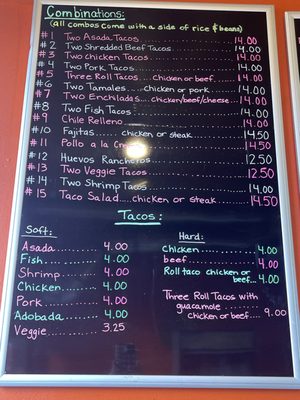 Combinations:
(all combos come with a side of rice & beans)
#1 Two Asada Tacos 14.00
#2 Two Shredded Beef Tacos 14.00
#3 Two Chicken Tacos 14.00
#4 Two Pork Tacos 14.00
#5 Three Roll Tacos... chicken or beef 14.00
#6 Two Tamales chicken or pork 14.00
#7 Two Enchiladas chicken/beef/cheese 14.00
#8 Two Fish Tacos 14.00
#9 Chile Relleno 14.00
#10 Fajitas chicken or steak 14.50
#11 Pollo a la 14.50
#12 Huevos Rancheros 12.50
#13 Two Veggie Tacos 12.50
#14 Two Shrimp Tacos 14.00
#15 Taco Salad chicken or steak 14.50
Tacos:
Soft:
Asada 4.00
Fish 4.00
Shrimp 4.00
Chicken 4.00
Pork 4.00
Adobada 4.00
Veggie 3.25
Hard:
Chicken 4.00
beef 4.00
Roll taco chicken or
beef... 4.00
Three Roll Tacos with
guacamole
chicken or beef.... 9.00